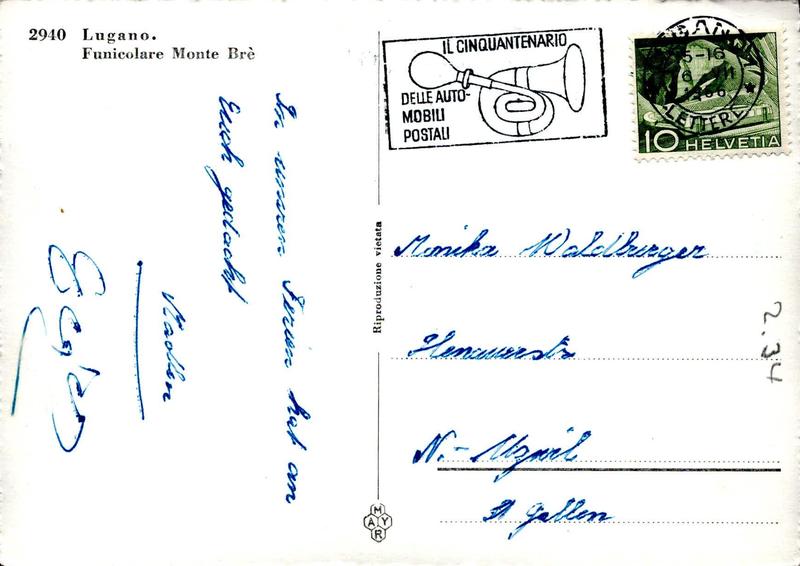 2940 Lugano.
Funicolare Monte Brè
IL CINQUANTENARIO
DELLE AUTO-
MOBILI
POSTALI
LETTERE
10 HELVETIA
In unsren Ferien hat an
Euch gedacht
Riproduzione vietata
Monika Waldburger
Henauerstr
N.- Uzwil
St Gallen
2.34
MAYR